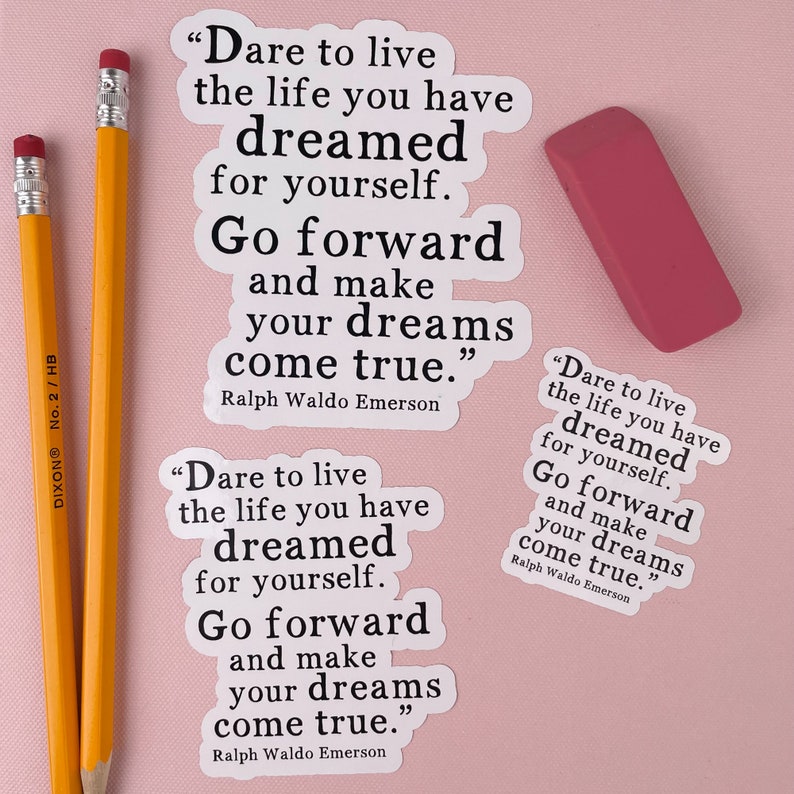 “Dare to live
the life you have
dreamed
for yourself.
Go forward
and make
your dreams
come true.”
Ralph Waldo Emerson
DIXON® No. 2 / HB
“Dare to live
the life you have
dreamed
for yourself.
Go forward
and make
your dreams
come true.”
Ralph Waldo Emerson
“Dare to live
the life you have
dreamed
for yourself.
Go forward
and make
your dreams
come true.”
Ralph Waldo Emerson